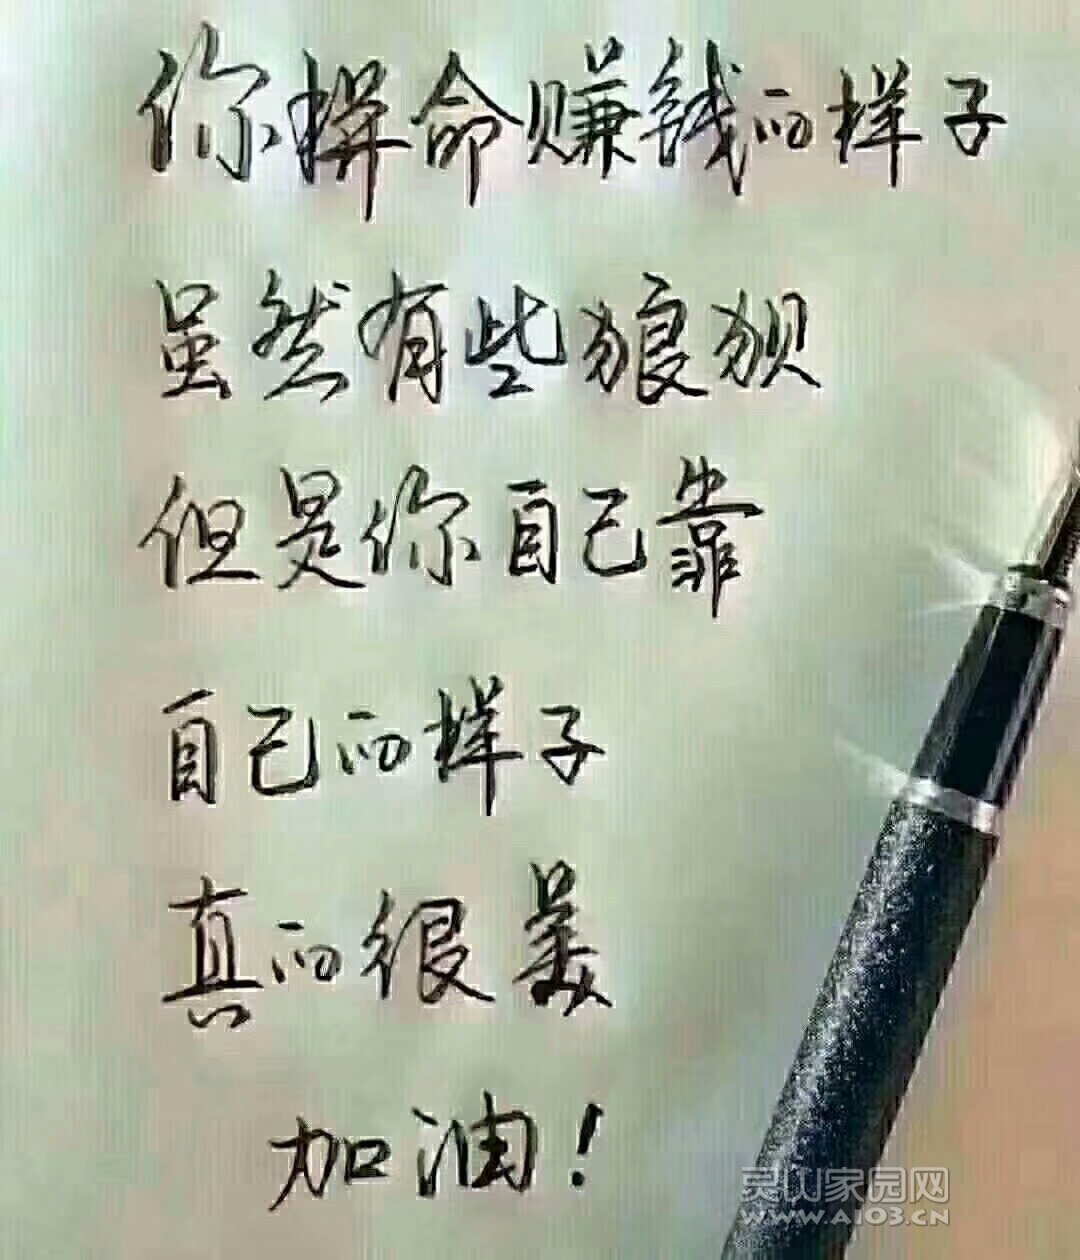 你拼命赚钱的样子
虽然有些狼狈
但是你自己靠
自己的样子
真的很美
加油！
灵山家园网
WWW.AI03.CN